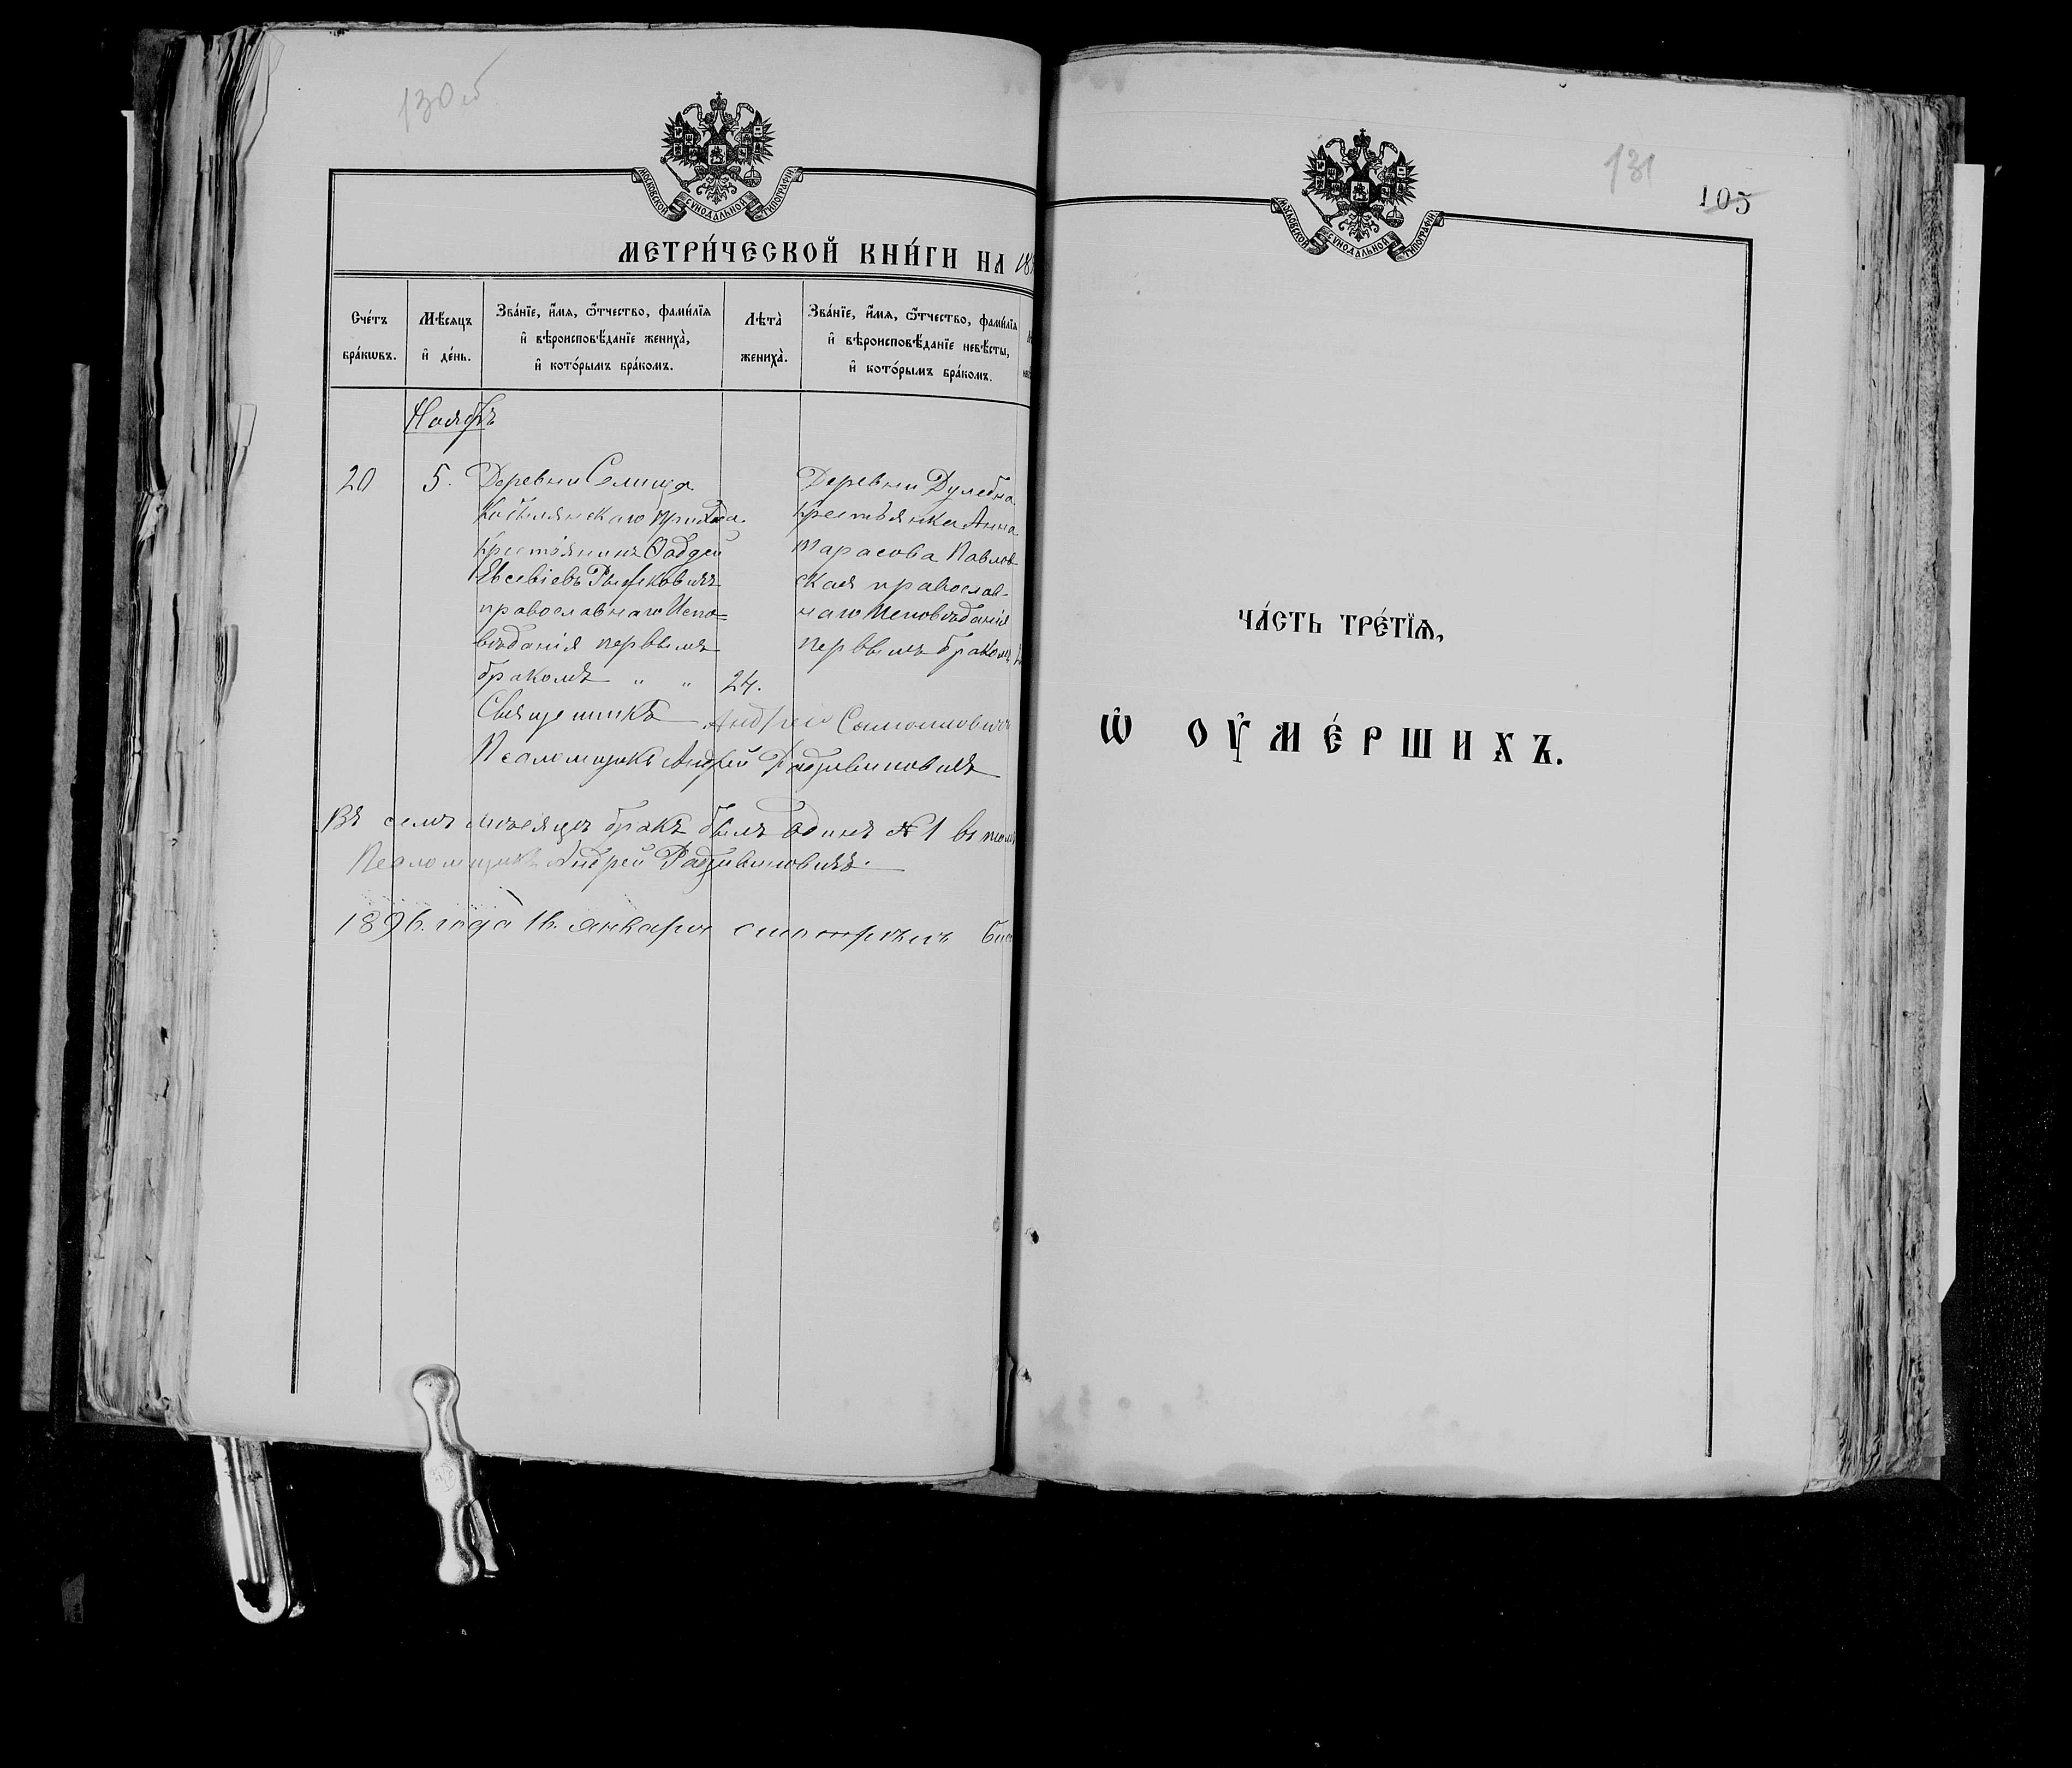 130 об
МОСКОВСКОЙ СѴНОДАЛЬНОЙ ТИПОГРАФІИ
МЕТРИ́ЧЕСКОЙ КНИ́ГИ НА 18
Сче́тъ бра́кѡвъ.
Мѣ́сяцъ и҆ де́нь.
Зва́нїе, и҆́мѧ, ѻ҆́тчество, фами́лїѧ
и҆ вѣроисповѣ́данїе жениха̀,
и҆ кото́рымъ бра́комъ.
Лѣта̀ жениха̀.
Зва́нїе, и҆́мѧ, ѻ҆́тчество, фами́лїѧ
и҆ вѣроисповѣ́данїе невѣ́сты,
и҆ кото́рымъ бра́комъ.
Ноябрь
20
5.
Деревни Селища
прихода
Крестьянинъ Фаддей
Евсевіевъ Рыжковичъ
православнаго Испо=
вѣданія первымъ
бракомъ " "
24.
Деревни Дулебна
Крестьянка Анна
Тарасова Павлов
ская православ-
наго Исповѣданія
первымъ бракомъ
Священникъ
Псаломщикъ Андрей Радзивиновичъ
Въ семъ мѣсяцѣ бракъ былъ одинъ № 1 въ томъ
Псаломщикъ Андрей Радзивиновичъ.
1896. года 16. января смотрѣлъ
131
105
МОСКОВСКОЙ СѴНОДАЛЬНОЙ ТИПОГРАФІИ
ЧА́СТЬ ТРЕ́ТЇѦ,
Ѡ҆ ОУ҆МЕ́РШИХЪ.